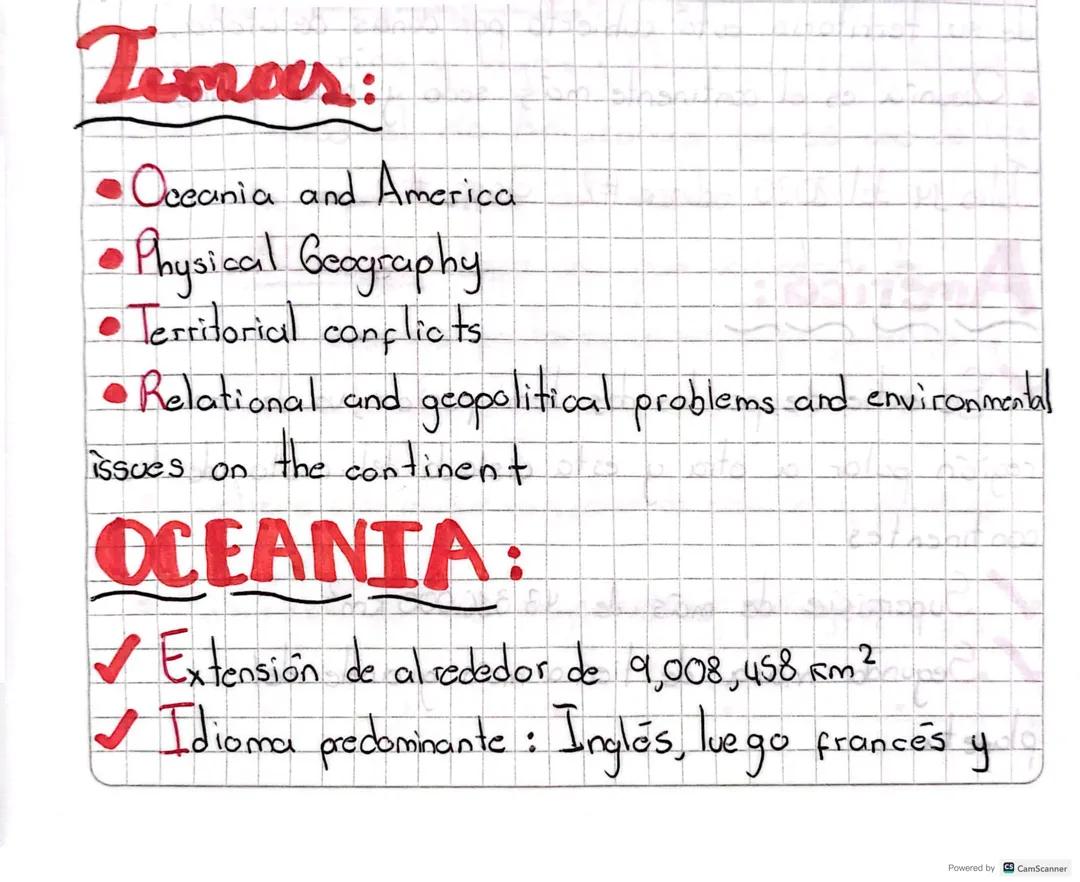 Temas:
Oceania and America
Physical Geography
Territorial conflicts
Relational and geopolitical problems and environmental
issues on the continent
OCEANIA:
✓ Extensión de alrededor de 9,008,458 km²
✓ Idioma predominante: Inglés, luego francés y
Powered by CS CamScanner